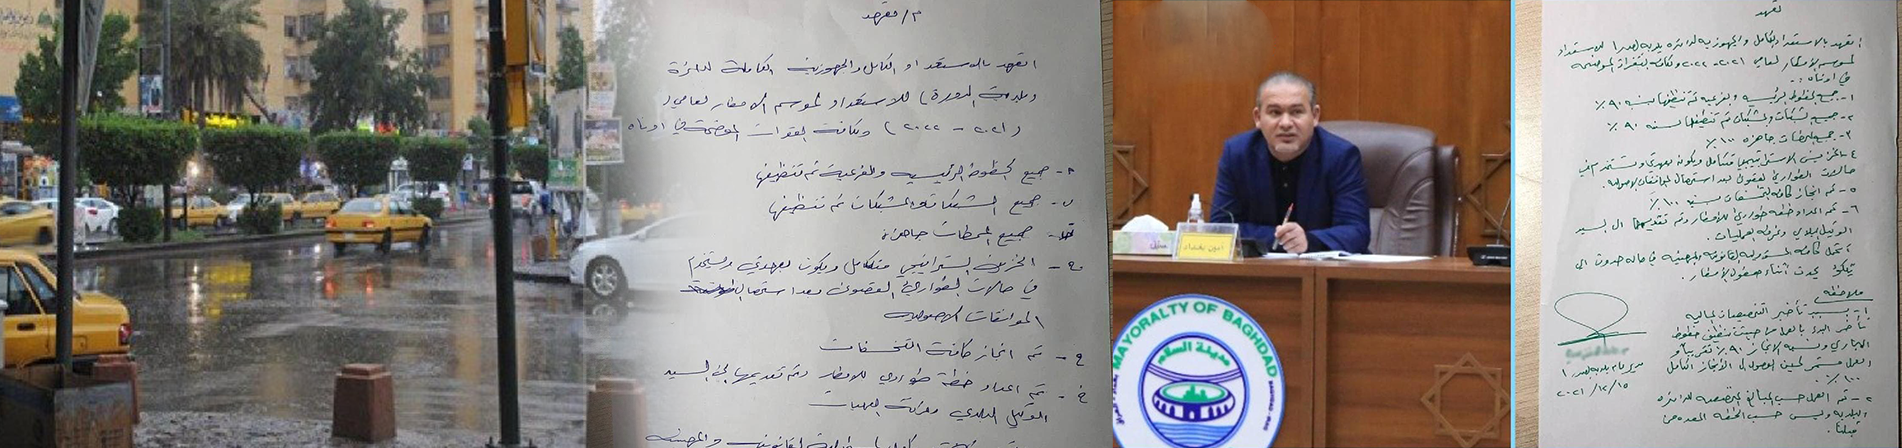 م/ تعهد
اتعهد بالاستعداد الكامل والجهوزية الكاملة لدائرة
(بلدية الدورة) للاستعداد لموسم الامطار لعامي
(٢٠٢١ - ٢٠٢٢) وبكافة الفقرات الموضحة في ادناه
جميع الخطوط الرئيسية والفرعية تم تنظيفها
جميع الشبكات والمشبكات تم تنظيفها
جميع المحطات جاهزة
الخزين الستراتيجي متكامل ويكون بعهدتي ويستخدم
في حالات الطوارئ القصوى بعد استحصال
الموافقات الاصولية
تم انجاز كافة التخسفات
تم اعداد خطة طوارئ للامطار وتم تقديمها الى السيد
الوكيل البلدي وغرفة العمليات
MAYORALTY OF BAGHDAD
مدينة السلام
أمين بغداد
تعهد
اتعهد بالاستعداد الكامل والجهوزية لدائرة بلدية الصدر ١ للاستعداد
لموسم الامطار لعامي ٢٠٢١-٢٠٢٢ وبكافة الفقرات الموضحة
في ادناه:-
١- جميع الخطوط الرئيسية والفرعية تم تنظيفها بنسبة ٩٠٪
٢- جميع الشبكات والمشبكات تم تنظيفها بنسبة ٩٠٪
٣- جميع المحطات جاهزة ١٠٠٪
٤- الخزين الاستراتيجي متكامل ويكون بعهدتي ويستخدم في
حالات الطوارئ القصوى بعد استحصال الموافقات الاصولية.
٥- تم انجاز كافة التخسفات بنسبة ١٠٠٪
٦- تم اعداد خطة طوارئ للامطار وتم تقديمها الى السيد
الوكيل البلدي وغرفة العمليات.
اتحمل كافة المسؤولية القانونية والمهنية في حالة حدوث اي
تلكؤ يحدث اثناء هطول الامطار.
ملاحظة
١- بسبب تأخير التخصيصات المالية
تأخر البدء بالعمل من حيث تنظيف خطوط
المجاري ونسبة الانجاز ٩٠٪ تقريباً و
العمل مستمر لحين الوصول الى الانجاز الكامل
١٠٠٪.
٢- تم العمل حسب المبالغ المخصصة للدائرة
البلدية وليس حسب الخطة المعدة من
قبلنا.
مدير عام بلدية الصدر ١
٢٠٢١/١٢/١٥